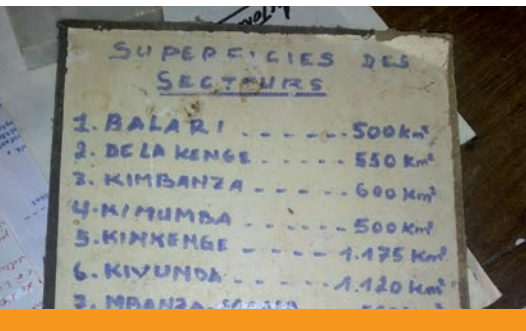 SUPERFICIES DES
SECTEURS
1. BALARI - - - - - - 500 km²
2. DE LA KENGE - - - - - 550 km²
3. KIMBANZA - - - - - 600 km²
4. KIMUMBA - - - - - 500 km²
5. KINKENGE - - - - - 1.175 km²
6. KIVUNDA - - - - - 1.120 km²
7. MBANZA